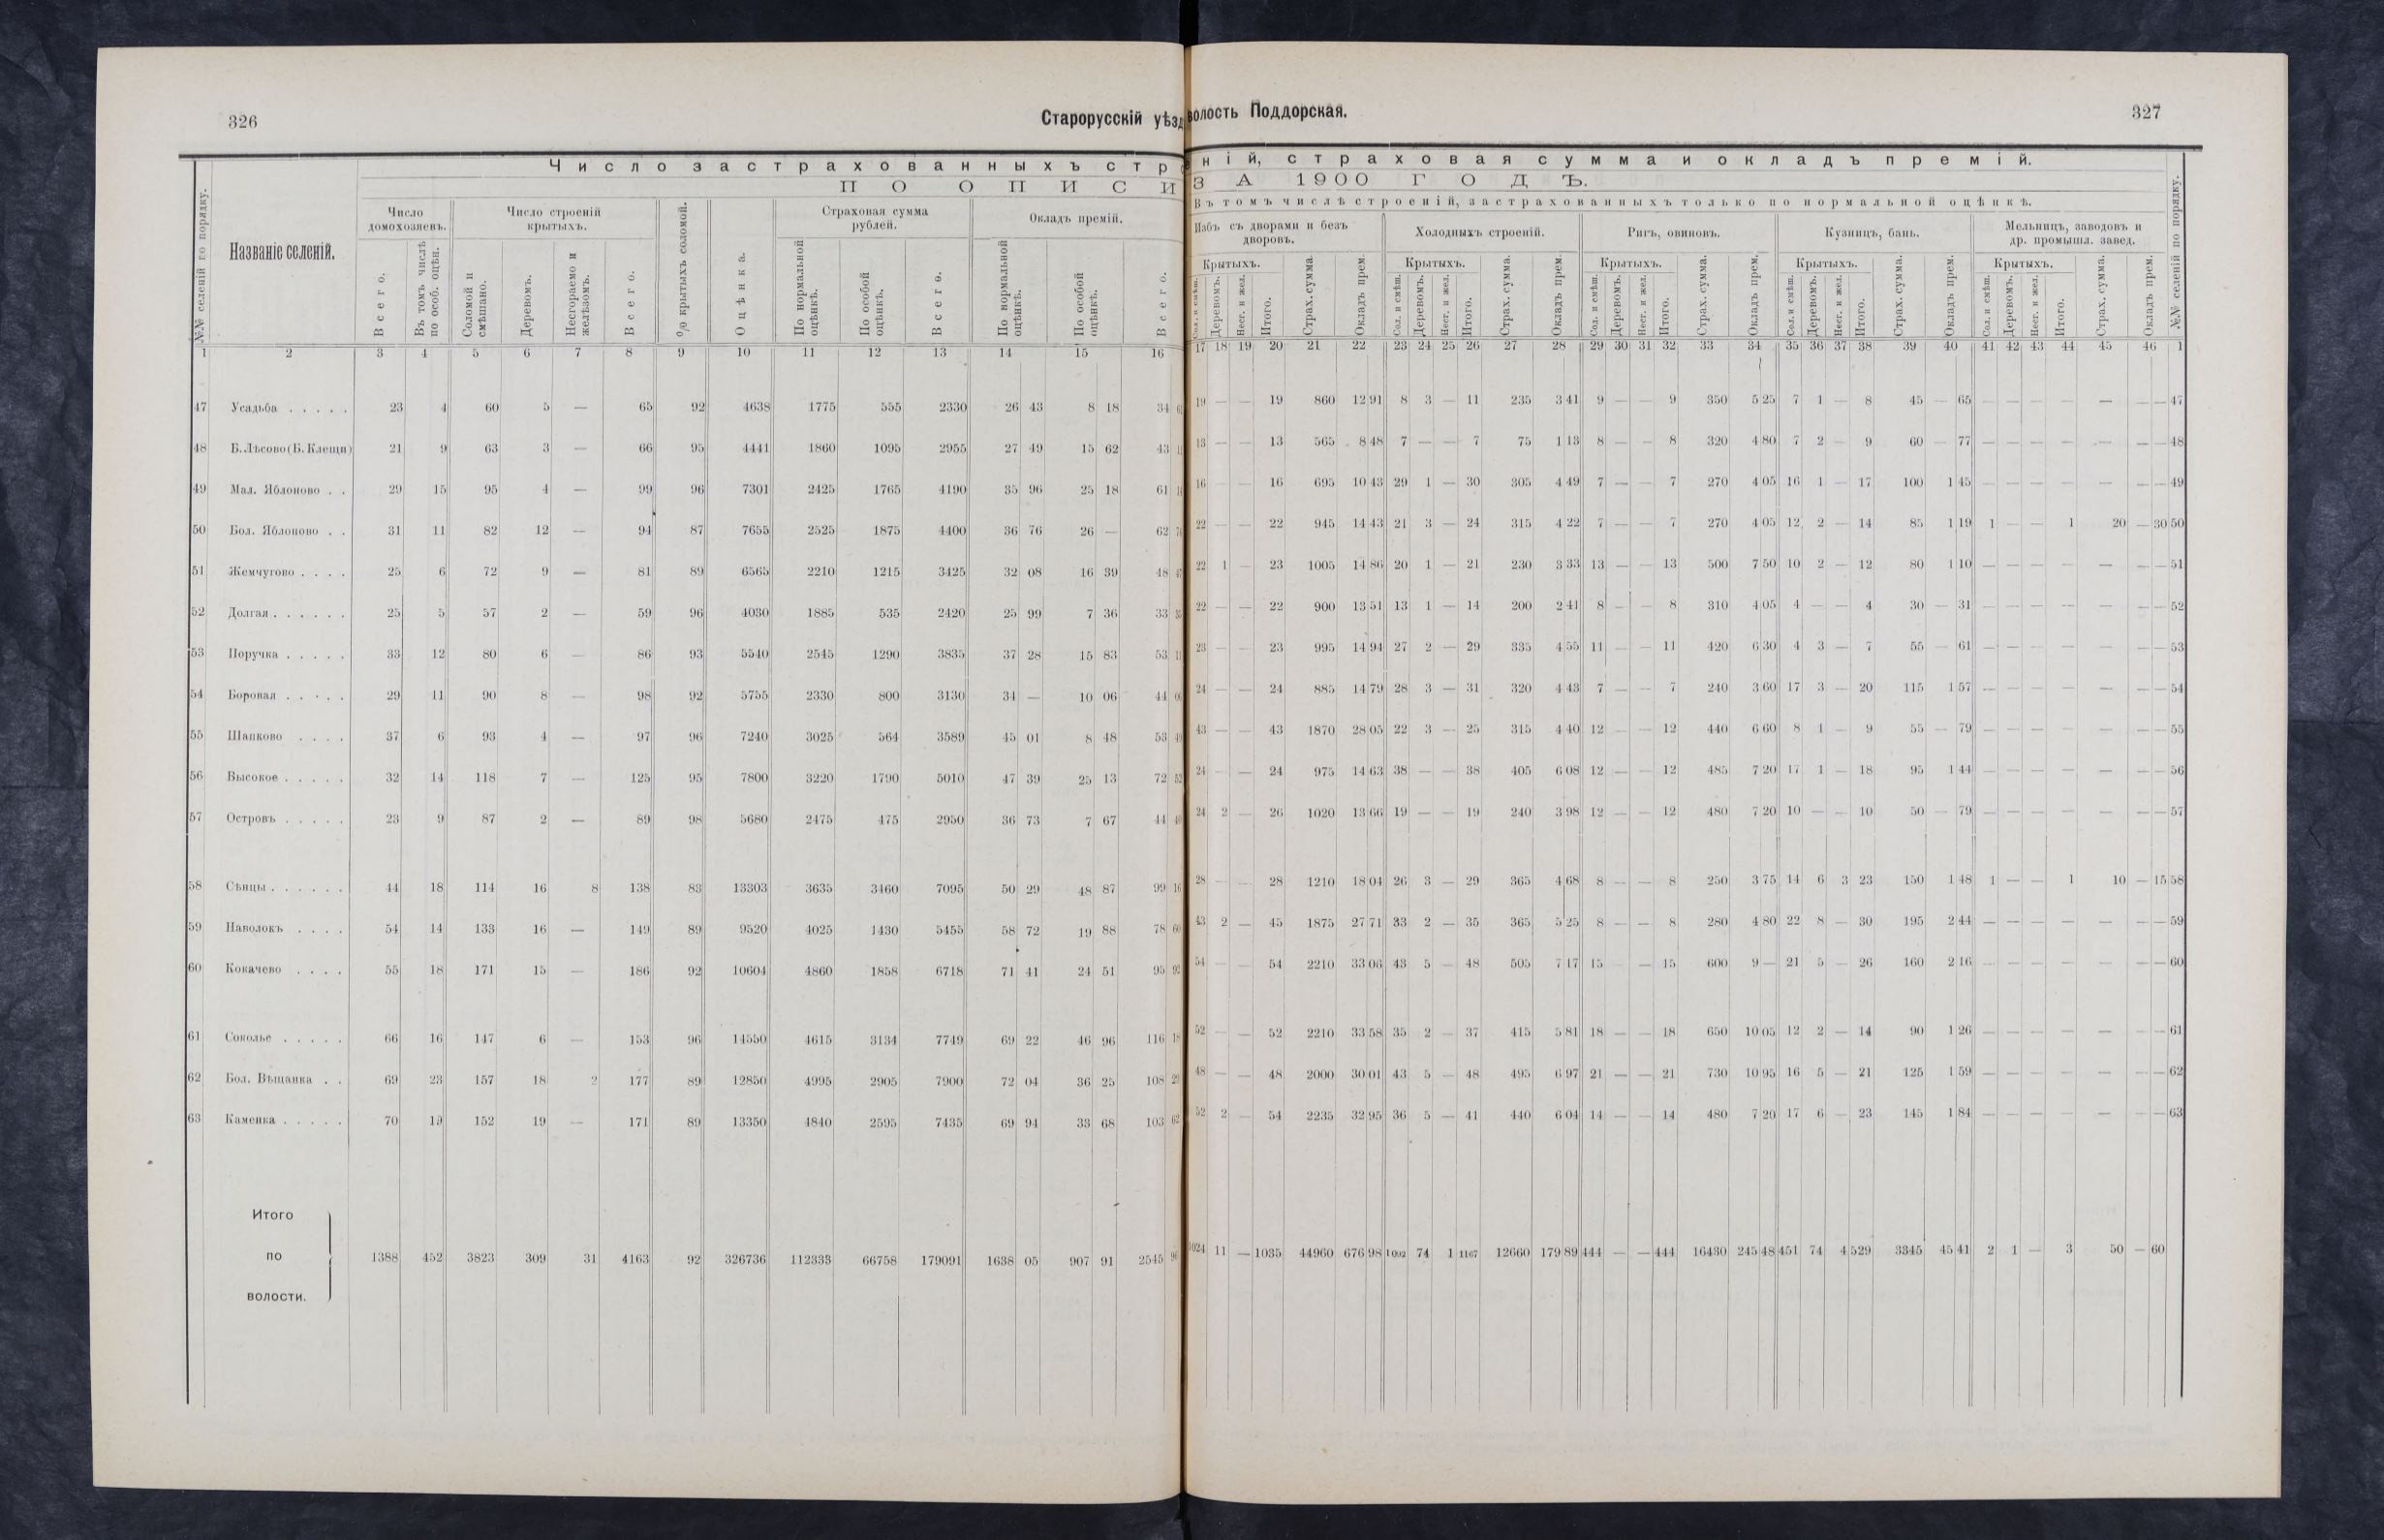 326
Старорусскій уѣзд
волость Поддорская.
327
Число застрахованныхъ стр
ній, страховая сумма и окладъ премій.
ПО ОПИСИ
ЗА 1900 ГОДЪ.
Въ томъ числѣ строеній, застрахованныхъ только по нормальной оцѣнкѣ.
№№ селеній по порядку.
Названіе селеній.
Число домохозяевъ.
Всего.
Въ томъ числѣ по особ. оцѣн.
Число строеній крытыхъ.
Соломой и смѣшано.
Деревомъ.
Несгораемо и желѣзомъ.
Всего.
% крытыхъ соломой.
Оцѣнка.
Страховая сумма рублей.
По нормальной оцѣнкѣ.
По особой оцѣнкѣ.
Всего.
Окладъ премій.
По нормальной оцѣнкѣ.
По особой оцѣнкѣ.
Всего.
Избъ съ дворами и безъ дворовъ.
Крытыхъ.
Сол. и смѣш.
Деревомъ.
Несг. и жел.
Итого.
Страх. сумма.
Окладъ прем.
Холодныхъ строеній.
Крытыхъ.
Сол. и смѣш.
Деревомъ.
Несг. и жел.
Итого.
Страх. сумма.
Окладъ прем.
Ригъ, овиновъ.
Крытыхъ.
Сол. и смѣш.
Деревомъ.
Несг. и жел.
Итого.
Страх. сумма.
Окладъ прем.
Кузницъ, бань.
Крытыхъ.
Сол. и смѣш.
Деревомъ.
Несг. и жел.
Итого.
Страх. сумма.
Окладъ прем.
Мельницъ, заводовъ и др. промышл. завед.
Крытыхъ.
Сол. и смѣш.
Деревомъ.
Несг. и жел.
Итого.
Страх. сумма.
Окладъ прем.
№№ селеній по порядку.
1 2 3 4 5 6 7 8 9 10 11 12 13 14 15 16 17 18 19 20 21 22 23 24 25 26 27 28 29 30 31 32 33 34 35 36 37 38 39 40 41 42 43 44 45 46 1
47 Усадьба . . . . . 23 4 60 5 — 65 92 4638 1775 555 2330 26 43 8 18 34 19 — — 19 860 12 91 8 3 — 11 235 3 41 9 — — 9 350 5 25 7 1 — 8 45 — 65 — — — — — — — 47
48 Б. Лѣсово (Б. Клещи) 21 9 63 3 — 66 95 4441 1860 1095 2955 27 49 15 62 43 13 — — 13 565 8 48 7 — — 7 75 1 13 8 — — 8 320 4 80 7 2 — 9 60 — 77 — — — — — — — 48
49 Мал. Яблоново . . 29 15 95 4 — 99 96 7301 2425 1765 4190 35 96 25 18 61 16 — — 16 695 10 43 29 1 — 30 305 4 49 7 — — 7 270 4 05 16 1 — 17 100 1 45 — — — — — — — 49
50 Бол. Яблоново . . 31 11 82 12 — 94 87 7655 2525 1875 4400 36 76 26 — 62 22 — — 22 945 14 43 21 3 — 24 315 4 22 7 — — 7 270 4 05 12 2 — 14 85 1 19 1 — — 1 20 — 30 50
51 Жемчугово . . . . 25 6 72 9 — 81 89 6565 2210 1215 3425 32 08 16 39 48 22 1 — 23 1005 14 86 20 1 — 21 230 3 33 13 — — 13 500 7 50 10 2 — 12 80 1 10 — — — — — — — 51
52 Долгая . . . . . . 25 5 57 2 — 59 96 4030 1885 535 2420 25 99 7 36 33 22 — — 22 900 13 51 13 1 — 14 200 2 41 8 — — 8 310 4 05 4 — — 4 30 — 31 — — — — — — — 52
53 Поручка . . . . . 33 12 80 6 — 86 93 5540 2545 1290 3835 37 28 15 83 53 23 — — 23 995 14 94 27 2 — 29 335 4 55 11 — — 11 420 6 30 4 3 — 7 55 — 61 — — — — — — — 53
54 Боровая . . . . . 29 11 90 8 — 98 92 5755 2330 800 3130 34 — 10 06 44 24 — — 24 885 14 79 28 3 — 31 320 4 43 7 — — 7 240 3 60 17 3 — 20 115 1 57 — — — — — — — 54
55 Шапково . . . . 37 6 93 4 — 97 96 7240 3025 564 3589 45 01 8 48 53 43 — — 43 1870 28 05 22 3 — 25 315 4 40 12 — — 12 440 6 60 8 1 — 9 55 — 79 — — — — — — — 55
56 Высокое . . . . . 32 14 118 7 — 125 95 7800 3220 1790 5010 47 39 25 13 72 24 — — 24 975 14 63 38 — — 38 405 6 08 12 — — 12 485 7 20 17 1 — 18 95 1 44 — — — — — — — 56
57 Островъ . . . . . 23 9 87 2 — 89 98 5680 2475 475 2950 36 73 7 67 44 24 2 — 26 1020 13 66 19 — — 19 240 3 98 12 — — 12 480 7 20 10 — — 10 50 — 79 — — — — — — — 57
58 Сѣнцы . . . . . . 44 18 114 16 8 138 83 13303 3635 3460 7095 50 29 48 87 99 16 28 — — 28 1210 18 04 26 3 — 29 365 4 68 8 — — 8 250 3 75 14 6 3 23 150 1 48 1 — — 1 10 — 15 58
59 Наволокъ . . . . 54 14 133 16 — 149 89 9520 4025 1430 5455 58 72 19 88 78 60 43 2 — 45 1875 27 71 33 2 — 35 365 5 25 8 — — 8 280 4 80 22 8 — 30 195 2 44 — — — — — — — 59
60 Кокачево . . . . 55 18 171 15 — 186 92 10604 4860 1858 6718 71 41 24 51 95 92 54 — — 54 2210 33 06 43 5 — 48 505 7 17 15 — — 15 600 9 — 21 5 — 26 160 2 16 — — — — — — — 60
61 Соколье . . . . . 66 16 147 6 — 153 96 14550 4615 3134 7749 69 22 46 96 116 18 52 — — 52 2210 33 58 35 2 — 37 415 5 81 18 — — 18 650 10 05 12 2 — 14 90 1 26 — — — — — — — 61
62 Бол. Вѣщанка . . 69 23 157 18 2 177 89 12850 4995 2905 7900 72 04 36 25 108 29 48 — — 48 2000 30 01 43 5 — 48 495 6 97 21 — — 21 730 10 95 16 5 — 21 125 1 59 — — — — — — — 62
63 Каменка . . . . . 70 19 152 19 — 171 89 13350 4840 2595 7435 69 94 33 68 103 62 52 2 — 54 2235 32 95 36 5 — 41 440 6 04 14 — — 14 480 7 20 17 6 — 23 145 1 84 — — — — — — — 63
Итого по волости. 1388 452 3823 309 31 4163 92 326736 112333 66758 179091 1638 05 907 91 2545 96 1024 11 — 1035 44960 676 98 1092 74 1 1167 12660 179 89 444 — — 444 16430 245 48 451 74 4 529 3345 45 41 2 1 — 3 50 — 60